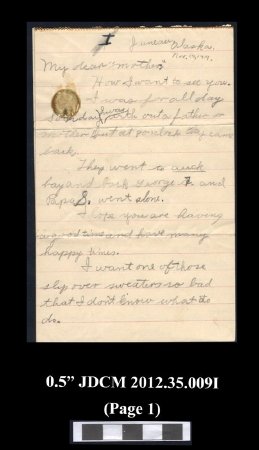 I
Juneau,
Alaska.
Nov. 19, 1919.
My dear mother,
How I want to see you.
I was for all day
Sunday I was with out a father or
mother but at
back.
They went to auack
bay and back George F. and
Papa S. went alone.
Hope you are having
a good time and have many
happy times.
I want one of those
slip over sweaters so bad
that I don't know what to
do.
0.5” JDCM 2012.35.009I
(Page 1)